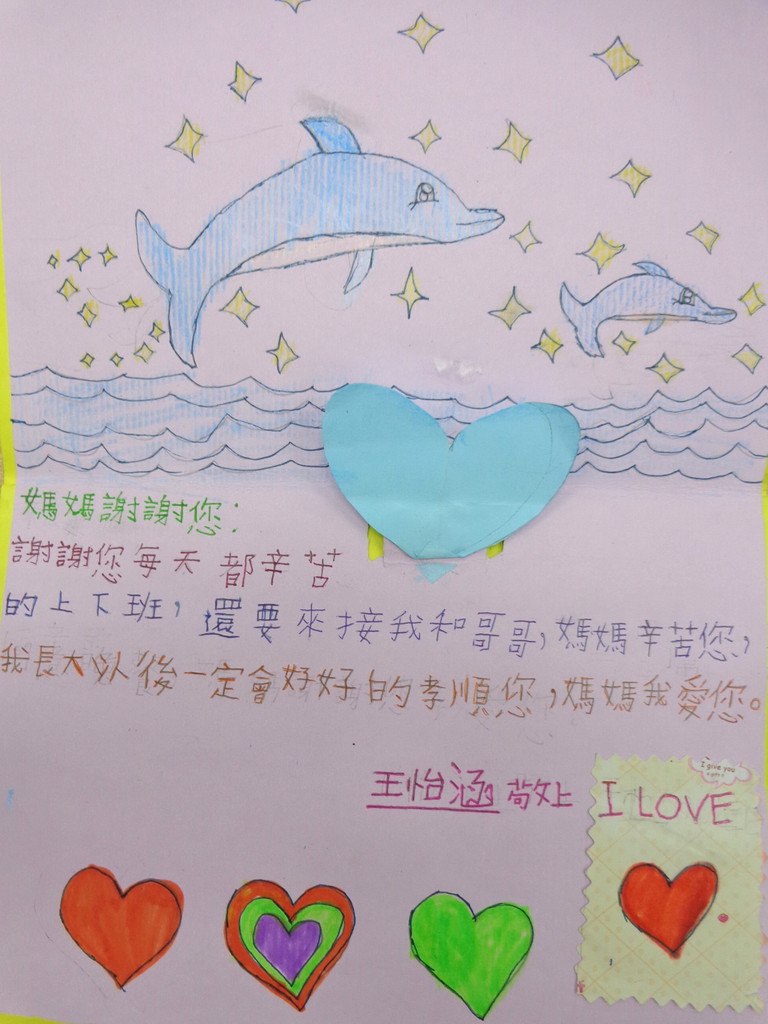 媽媽謝謝您：
謝謝您每天都辛苦
的上下班，還要來接我和哥哥，媽媽辛苦您，
我長大以後一定會好好的孝順您，媽媽我愛您。
王怡涵敬上
I give you
I LOVE